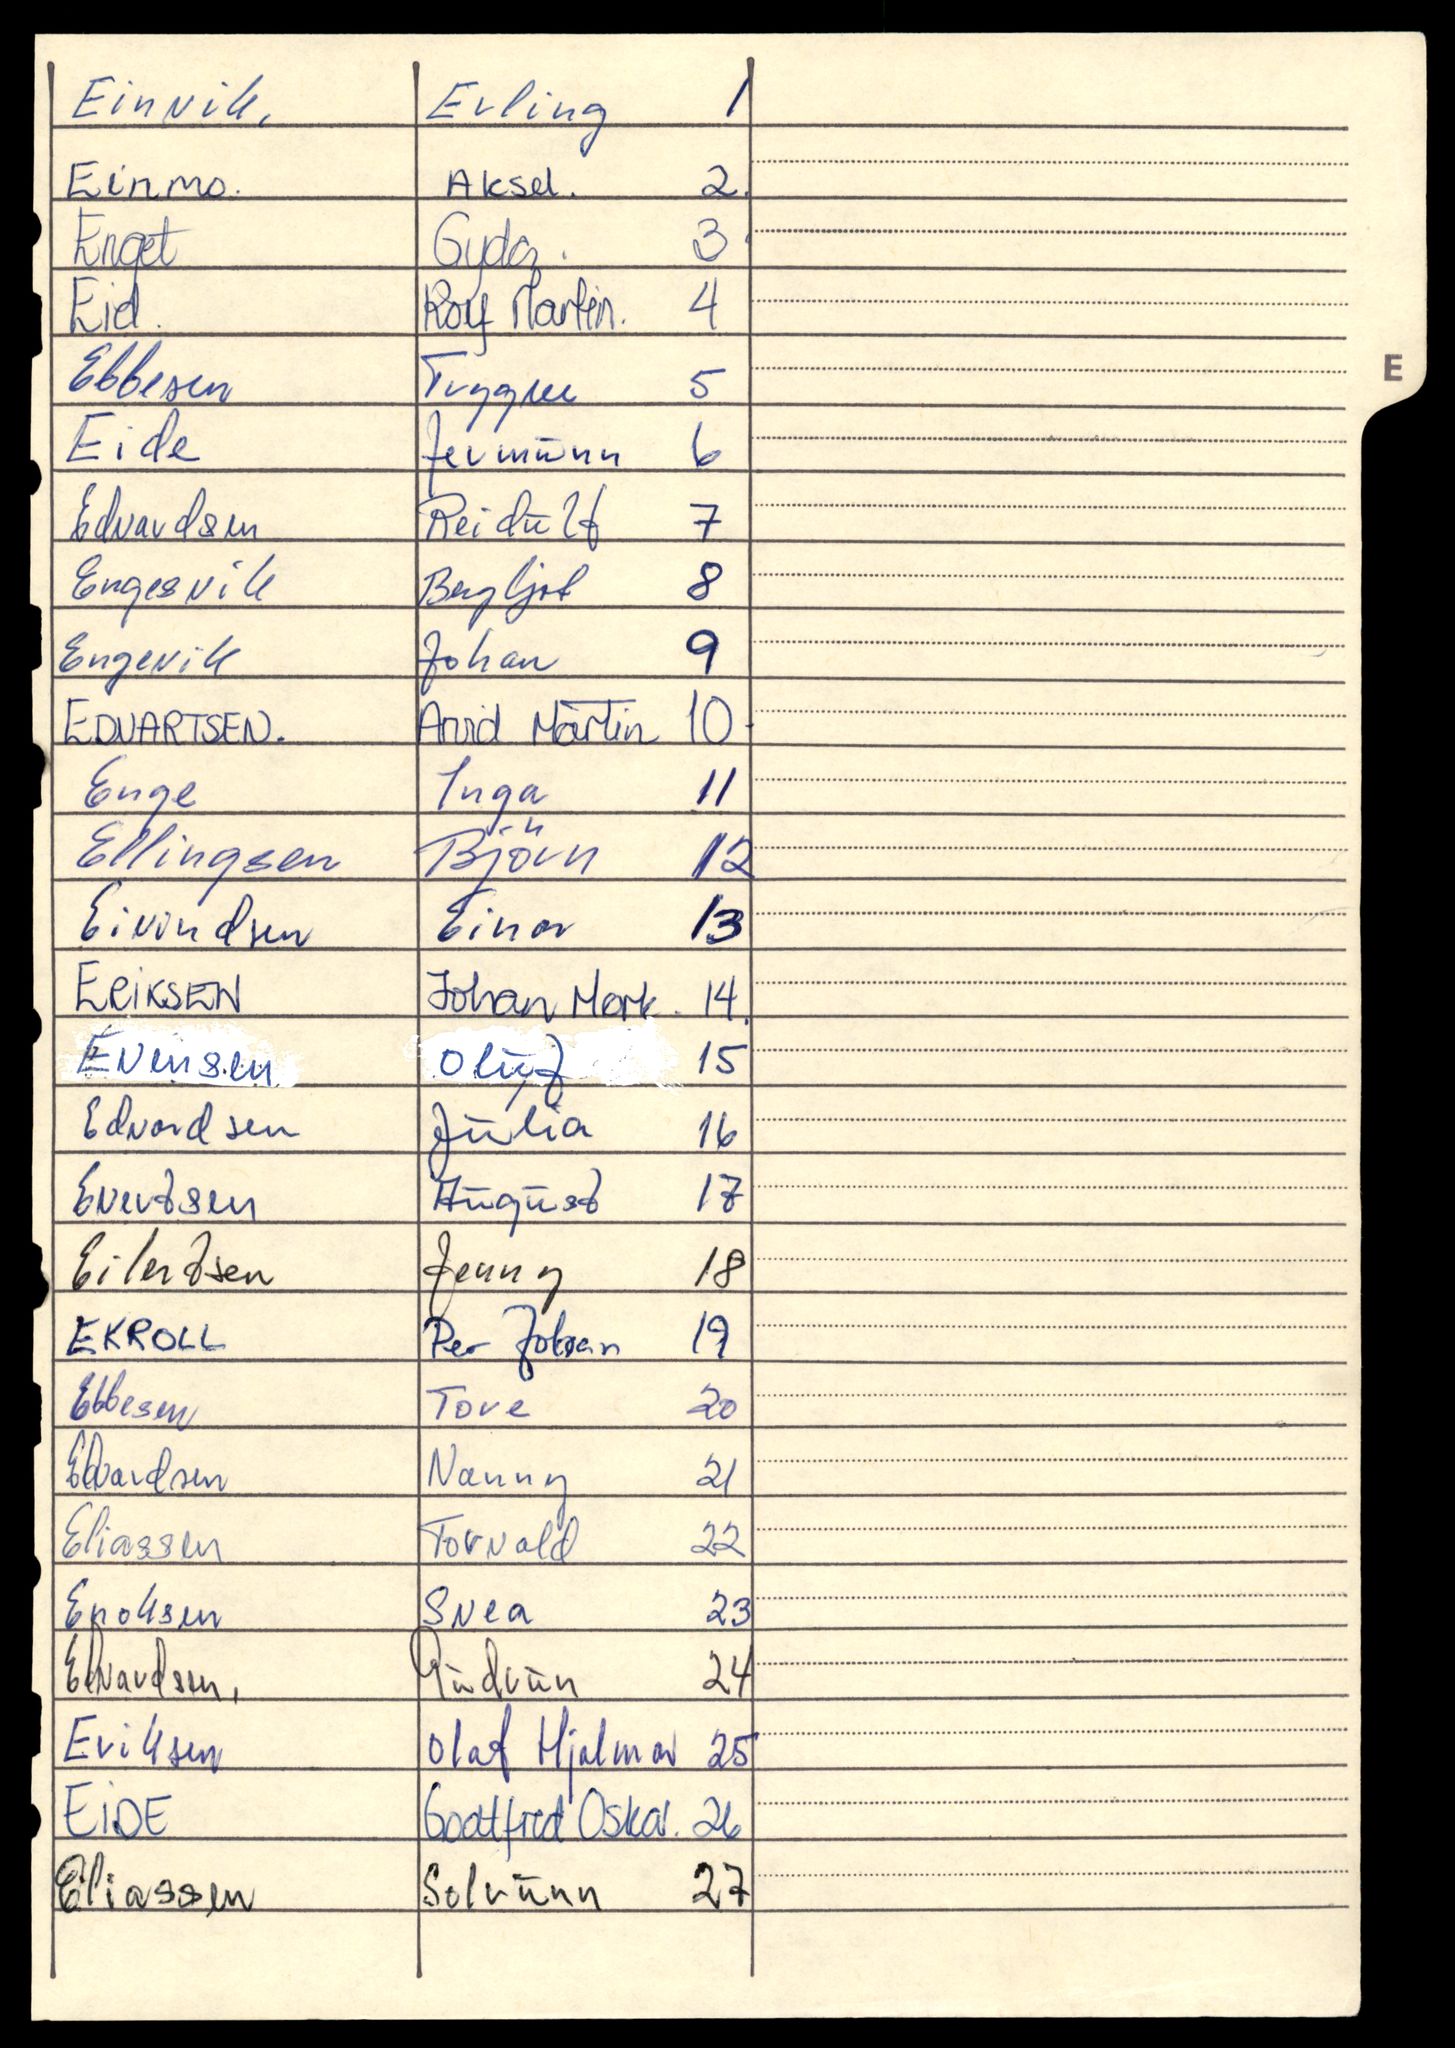 Einvik, Erling 1
Einmo. Aksel. 2.
Enget Gyda. 3
Eid. Rolf Martin. 4
Ebbesen Tryggve 5
Eide Jermūnn 6
Edvardsen Reidūlf 7
Engesvik Bergljot 8
Engevik Johan 9
EDVARTSEN. Arvid Martin 10.
Enge Inga 11
Ellingsen Björn 12
Eivindsen Einar 13
ERIKSEN Johan Mork. 14.
Evensen Olūf 15
Edvardsen Jūlia 16
Evertsen Aūgūst 17
Eilertsen Jenny 18
EKROLL Per Johan 19
Ebbesen Tove 20
Edvardsen Nanny 21
Eliassen Torvald 22
Enoksen Svea 23
Edvardsen, Gūdrūn 24
Eriksen Olaf Hjalmar 25
EIDE Godtfred Oskar. 26
Eliassen Solrūnn 27
E